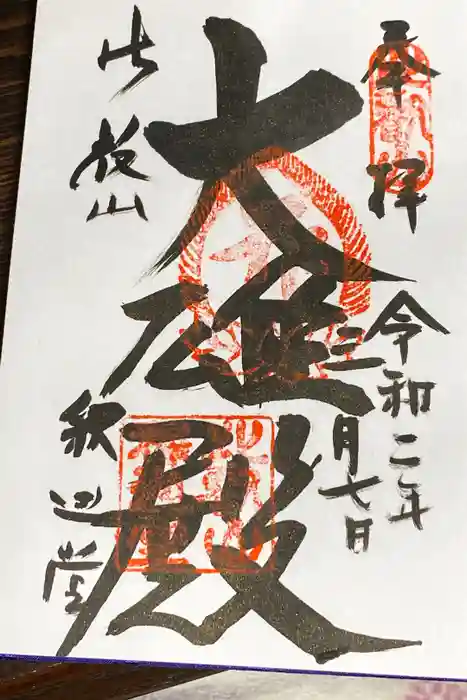 奉拝
令和二年
三月七日
大雄殿
比叡山
釈迦堂